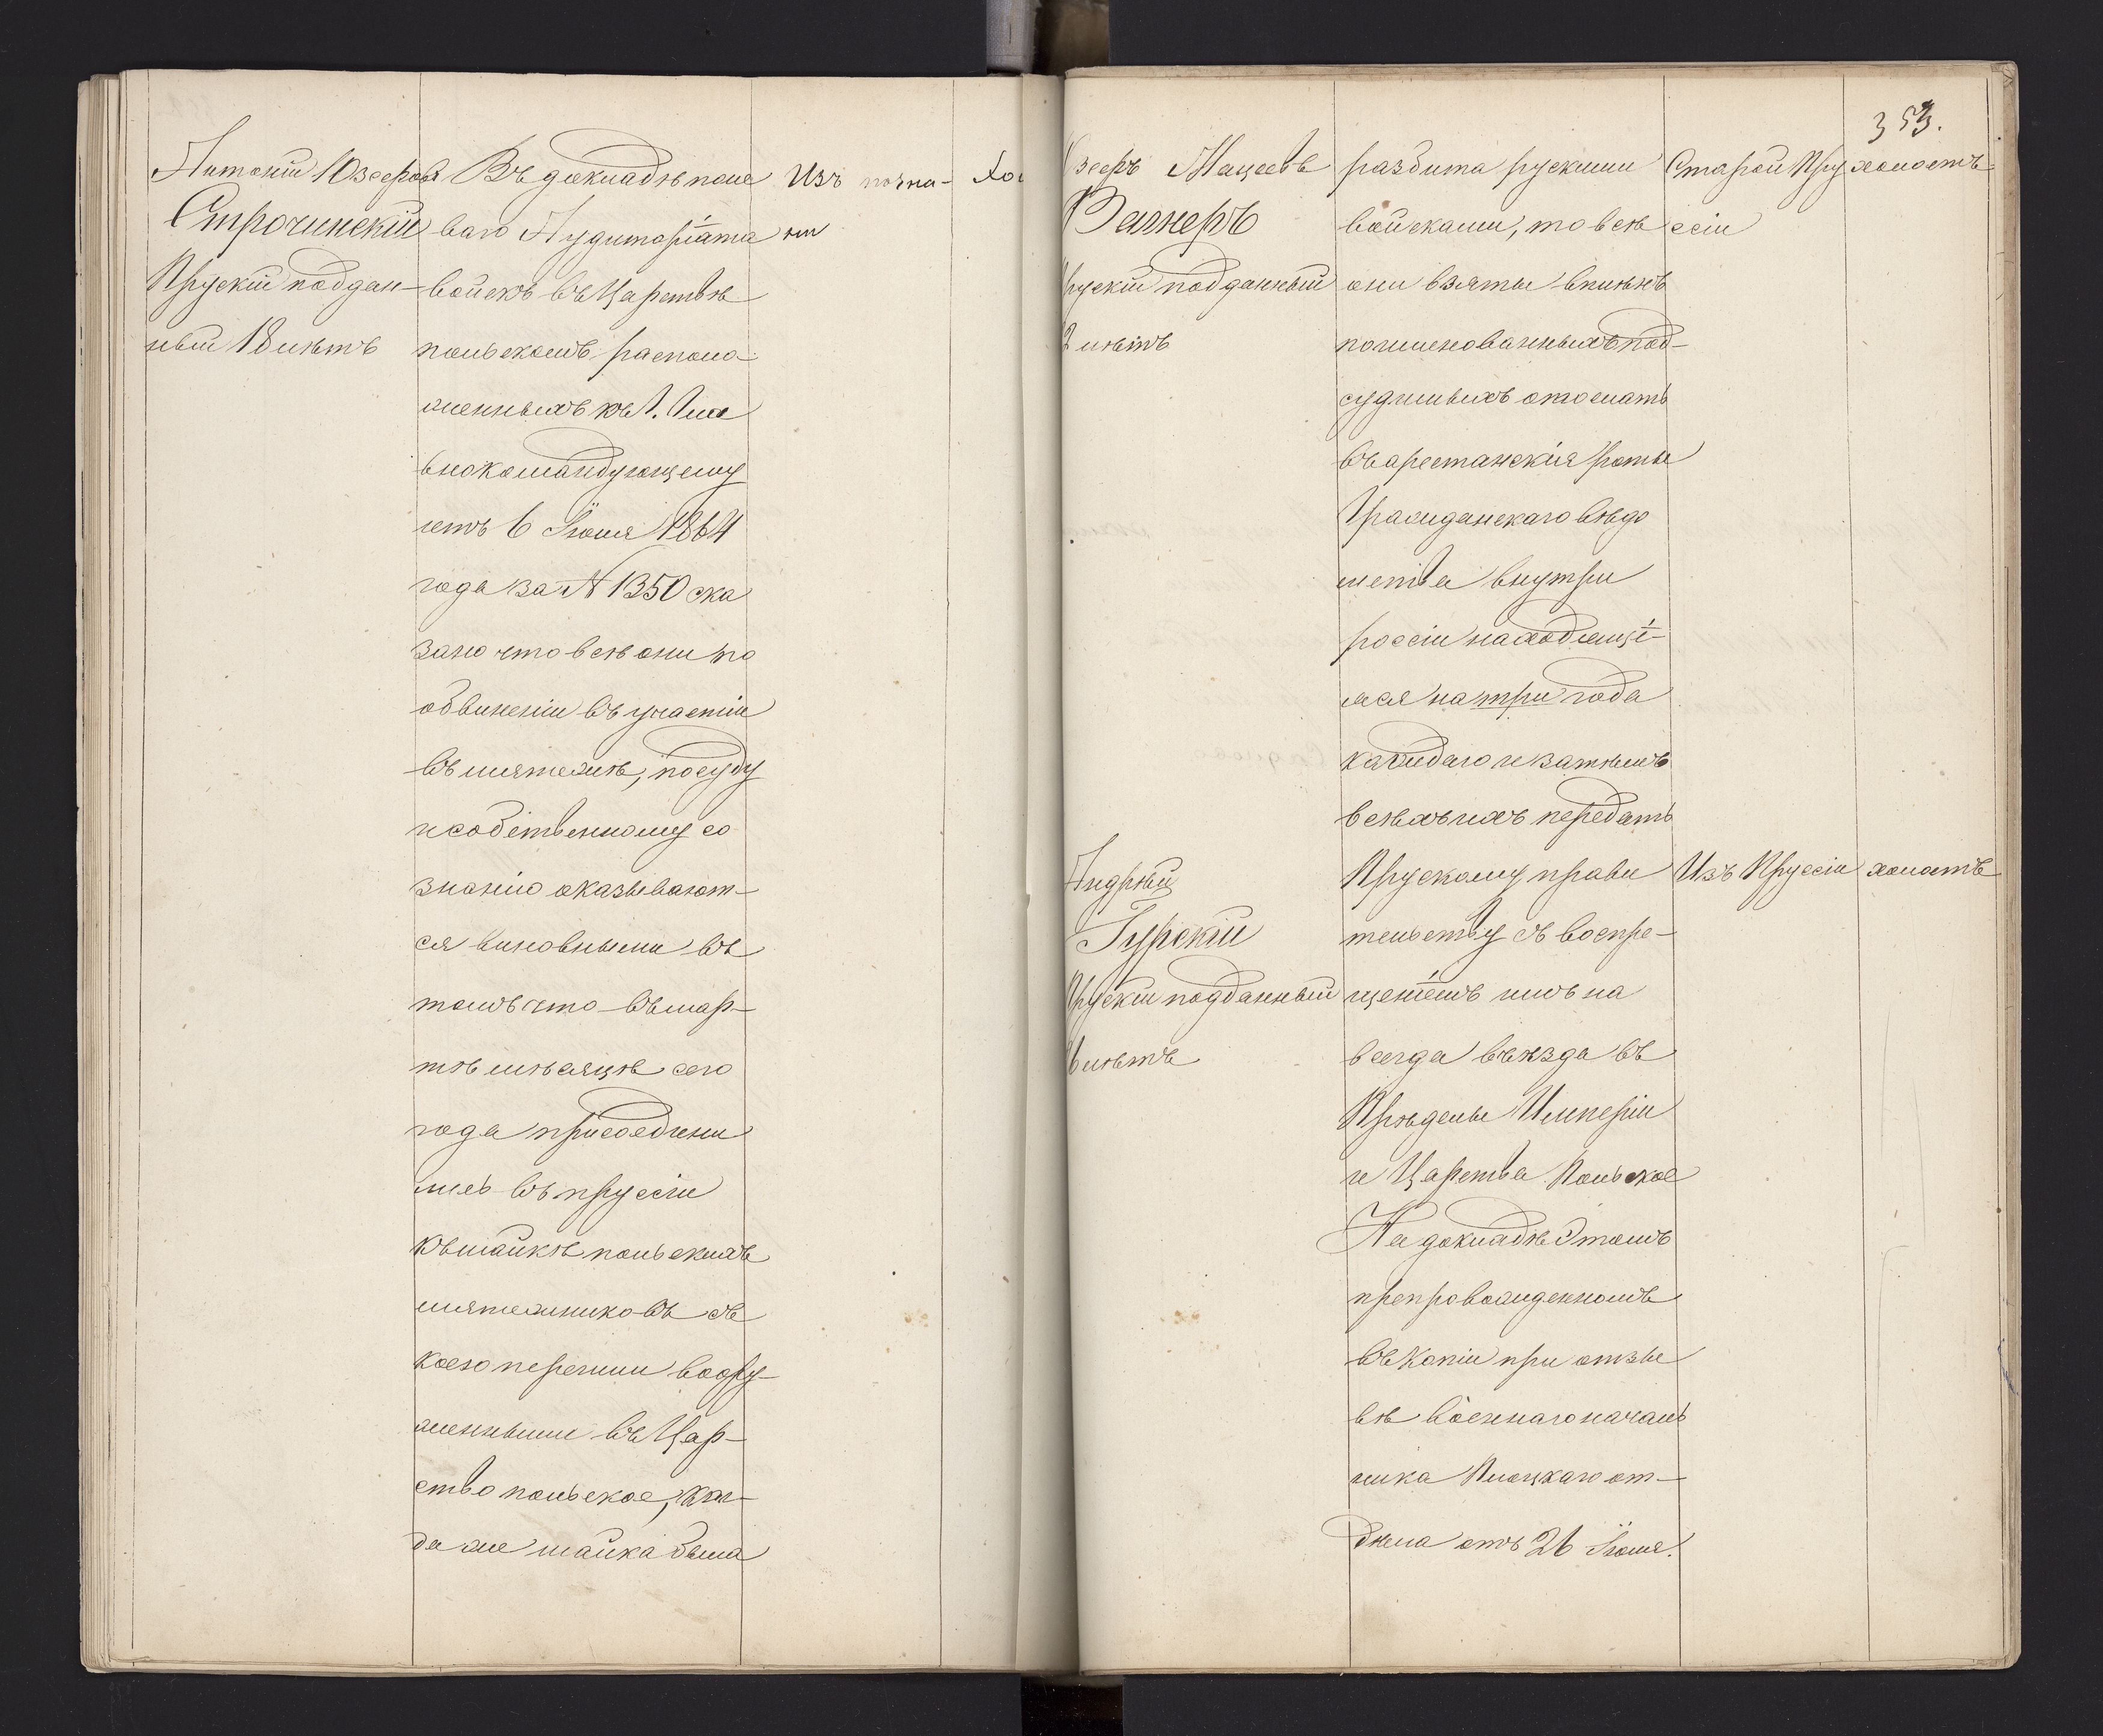 Антоній Юзееровъ
Строчинскій
Прускій поддан-
ный 18 лѣтъ
Въ докладѣ поле
ваго Аудиторіата
войскъ въ Царствѣ
польскомъ располо
женныхъ къ Г. Гла
внокомандующему
отъ 6 Іюля 1864
года за N 1350 ска
зано что всѣ они по
обвиненіи въ участіи
въ мятежѣ, по суду
и собственному со
знанію оказывают-
ся виновными въ
томъ что въ мар-
тѣ мѣсяцѣ сего
года присоедини
лись въ пруссіи
къ шайкѣ польскихъ
мятежниковъ съ
коею перешли воору-
женными въ Цар-
ство польское, ког-
да же шайка была
Изъ позна-
ни
Хо
353.
зееръ Мацеевъ
Вагнеръ
рускій подданный
2 лѣтъ
Андрей
Гурскій
Прускій подданный
6 лѣтъ
разбита рускими
войсками, то всѣ
они взяты въ плѣнъ
поименованныхъ под-
судимыхъ отослать
въ арестанскія роты
Гражданскаго вѣдо
мства внутри
россіи находящі-
яся на три года
каждаго и затѣмъ
всѣхъ ихъ передать
Прускому прави
тельству съ воспре-
щеніемъ имъ на
всегда въѣзда въ
Прѣделы Имперіи
и Царства Польское
На докладѣ Этомъ
препровожденномъ
въ Копіи при отзы
вѣ Военнаго началь
ника Плоцкаго от-
дѣла отъ 26 Іюля.
Старой Пру
ссіи
холостъ
Изъ Пруссіи
холостъ